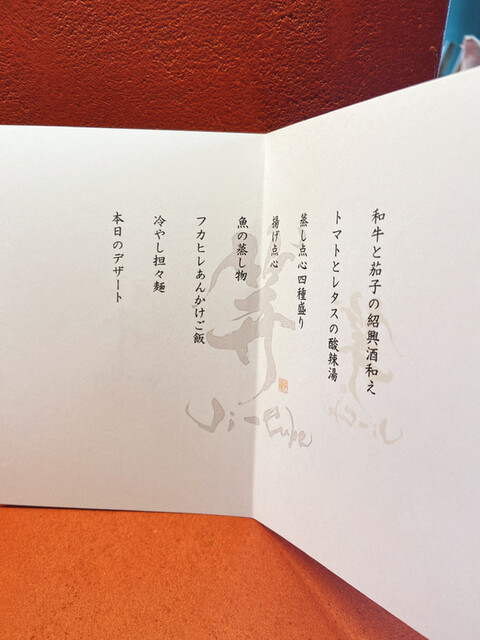 和牛と茄子の紹興酒和え
トマトとレタスの酸辣湯
蒸し点心四種盛り
揚げ点心
魚の蒸し物
フカヒレあんかけご飯
冷やし担々麺
本日のデザート